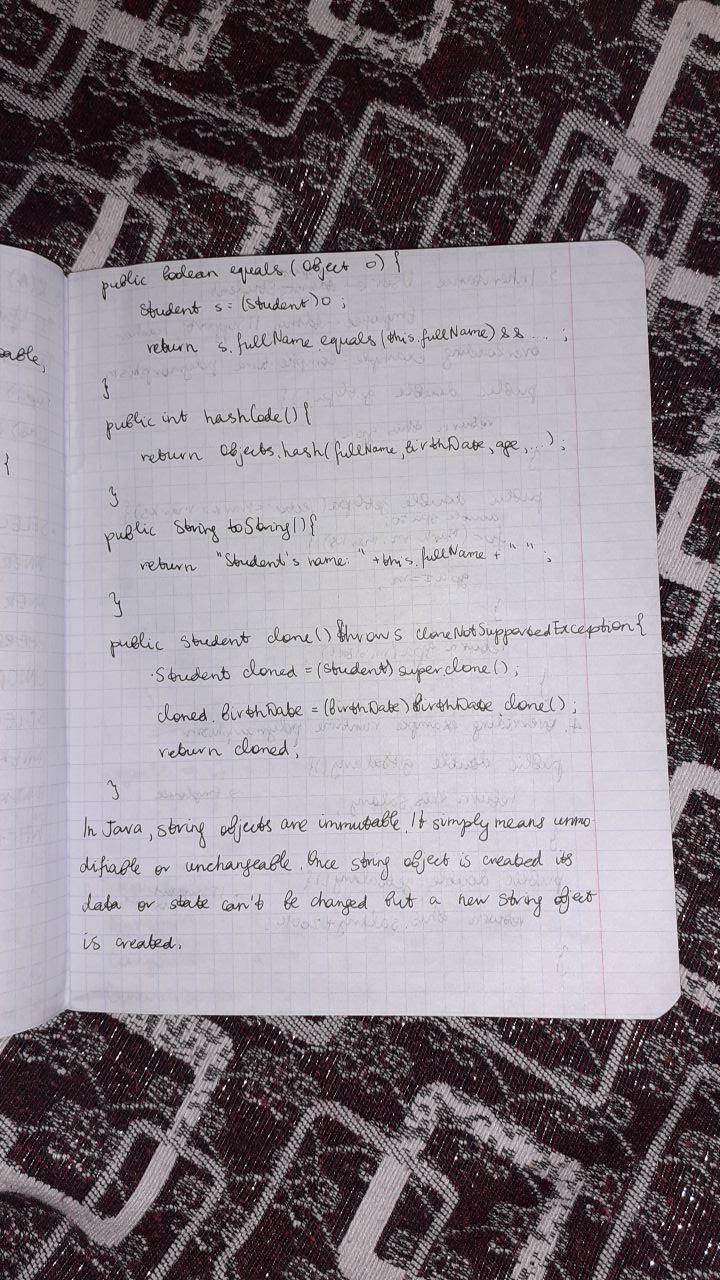 public boolean equals(Object o) {
Student s = (Student)o ;
return s.fullName.equals(this.fullName) && ... ;
}
public int hashCode() {
return Objects.hash(fullName, birthDate, age, ...) ;
}
public String toString() {
return "Student's name: " + this.fullName + " " ;
}
public Student clone() throws CloneNotSupportedException {
Student cloned = (Student) super.clone() ;
cloned.birthDate = (birthDate) birthDate.clone() ;
return cloned;
}
In Java, string objects are immutable. It simply means unmo
difiable or unchangeable. Once string object is created its
data or state can't be changed but a new string object
is created.
able,
{